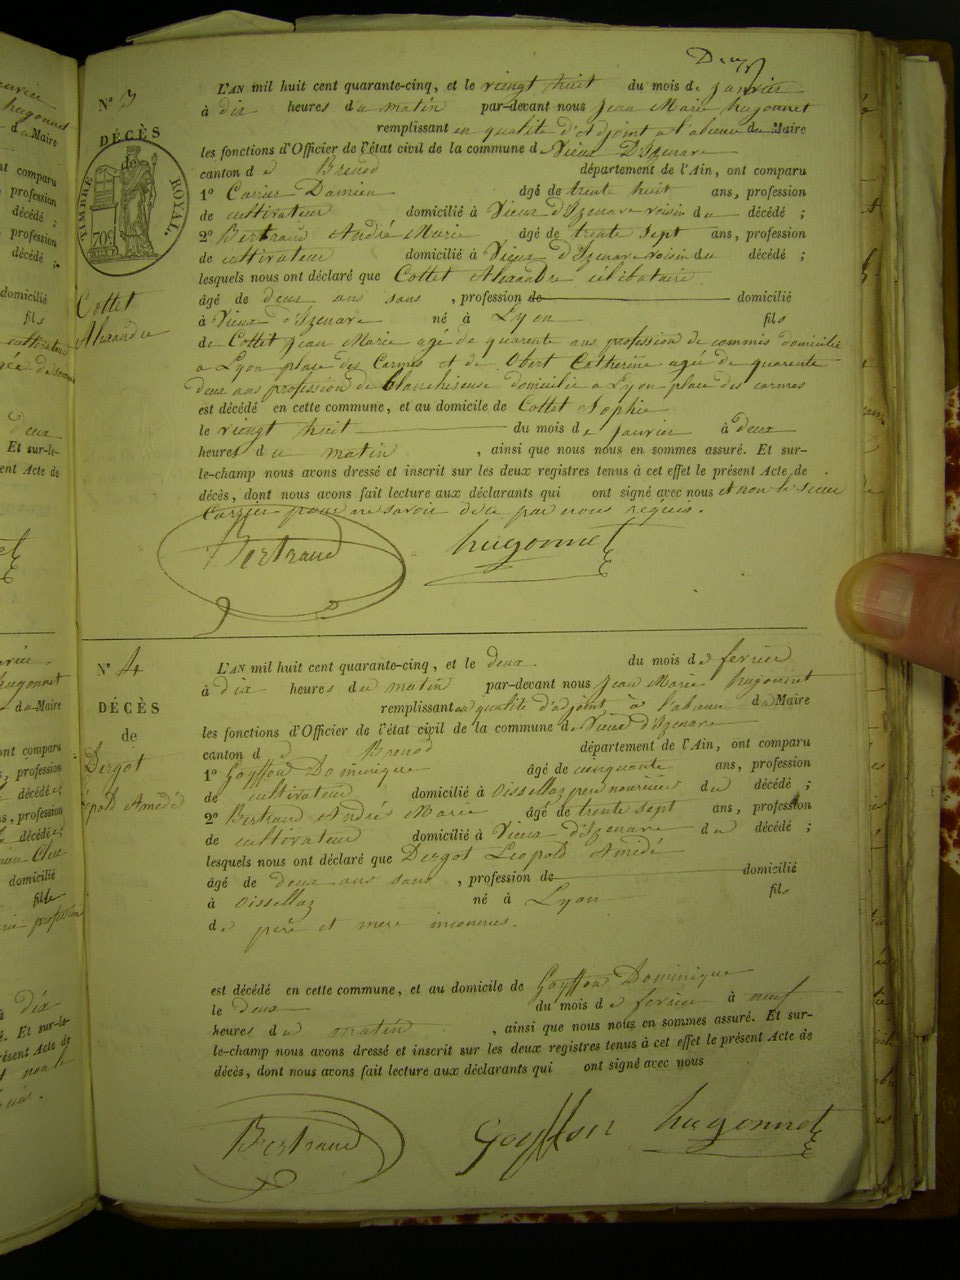 Deux
N° 3
DÉCÈS
de
TIMBRE ROYAL.
70c
Cottet
Alexandre
L'AN mil huit cent quarante-cinq, et le vingt huit du mois de janvier
à dix heures du matin par-devant nous Jean Marie hugonnet
remplissant en qualité d'adjoint a l'absence du Maire
les fonctions d'Officier de l'état civil de la commune de Vieux D'Izenave
canton de Brenod département de l'Ain, ont comparu
1° Carrier Damien âgé de trente huit ans, profession
de cultivateur domicilié à Vieux d'Izenave voisin du décédé ;
2° Bertrand André Marie âgé de trente sept ans, profession
de cultivateur domicilié à Vieux d'Izenave voisin du décédé ;
lesquels nous ont déclaré que Cottet Alexandre célibataire
âgé de deux ans sans , profession de domicilié
à Vieux d'Izenave né à Lyon fils
de Cottet Jean Marie agé de quarante ans profession de commis domicilié
a Lyon place des Carmes et de Obert Catherine agée de quarente
deux ans profession de blanchiseuse domicilié a Lyon place des carmes
est décédé en cette commune, et au domicile de Cottet Sophie
le vingt huit du mois de janvier à deux
heures du matin , ainsi que nous nous en sommes assuré. Et sur-
le-champ nous avons dressé et inscrit sur les deux registres tenus à cet effet le présent Acte de
décès, dont nous avons fait lecture aux déclarants qui ont signé avec nous et non le sieur
Carrier pour ne savoir de ce par nous requis.
Bertrand hugonnet
N° 4
DÉCÈS
de
Dergot
éopold Amédé
L'AN mil huit cent quarante-cinq, et le deux du mois de fevrier
à dix heures du matin par-devant nous Jean Marie hugonnet
remplissant en qualité d'adjoint à l'absence du Maire
les fonctions d'Officier de l'état civil de la commune de Vieux d'Izenave
canton de Brenod département de l'Ain, ont comparu
1° Goyffon Dominique âgé de cinquante ans, profession
de cultivateur domicilié à Oissellaz pere nouricier du décédé ;
2° Bertrand André Marie âgé de trente sept ans, profession
de cultivateur domicilié à Vieux d'Izenave du décédé ;
lesquels nous ont déclaré que Dergot Leopold Amédé
âgé de deux ans sans , profession de domicilié
à Oissellaz né à Lyon fils
de père et mere inconnus.
est décédé en cette commune, et au domicile de Goyffon Dominique
le deux du mois de fevrier à neuf
heures du matin , ainsi que nous nous en sommes assuré. Et sur-
le-champ nous avons dressé et inscrit sur les deux registres tenus à cet effet le présent Acte de
décès, dont nous avons fait lecture aux déclarants qui ont signé avec nous
Bertrand Goyffon hugonnet